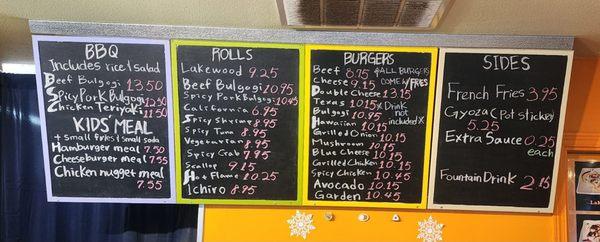 BBQ
Includes rice & salad
Beef Bulgogi 13.50
Spicy Pork Bulgogi 12.50
Chicken Teriyaki 11.50
KIDS' MEAL
+ small fries & small soda
Hamburger meal 7.50
Cheeseburger meal 7.55
Chicken nugget meal
7.55
ROLLS
Lakewood 9.25
Beef Bulgogi 10.95
Spicy Pork Bulgogi 10.45
California 6.95
Spicy Shrimp 8.95
Spicy Tuna 8.95
Vegetarian 8.95
Spicy Crab 7.95
Scallop 9.15
Hot Flame 10.25
Ichiro 8.95
BURGERS
Beef 8.75
Cheese 9.15
Double Cheese 13.15
Texas 10.15
Bulgogi 10.95
Hawaiian 10.15
Grilled Onion 10.15
Mushroom 10.15
Blue Cheese 10.15
Grilled Chicken 10.15
Spicy Chicken 10.45
Avocado 10.15
Garden 10.45
ALL BURGERS
COME W/FRIES
X Drink
not
included X
SIDES
French Fries 3.95
Gyoza (Pot sticker)
5.25
Extra Sauce 0.25
each
Fountain Drink 2.15